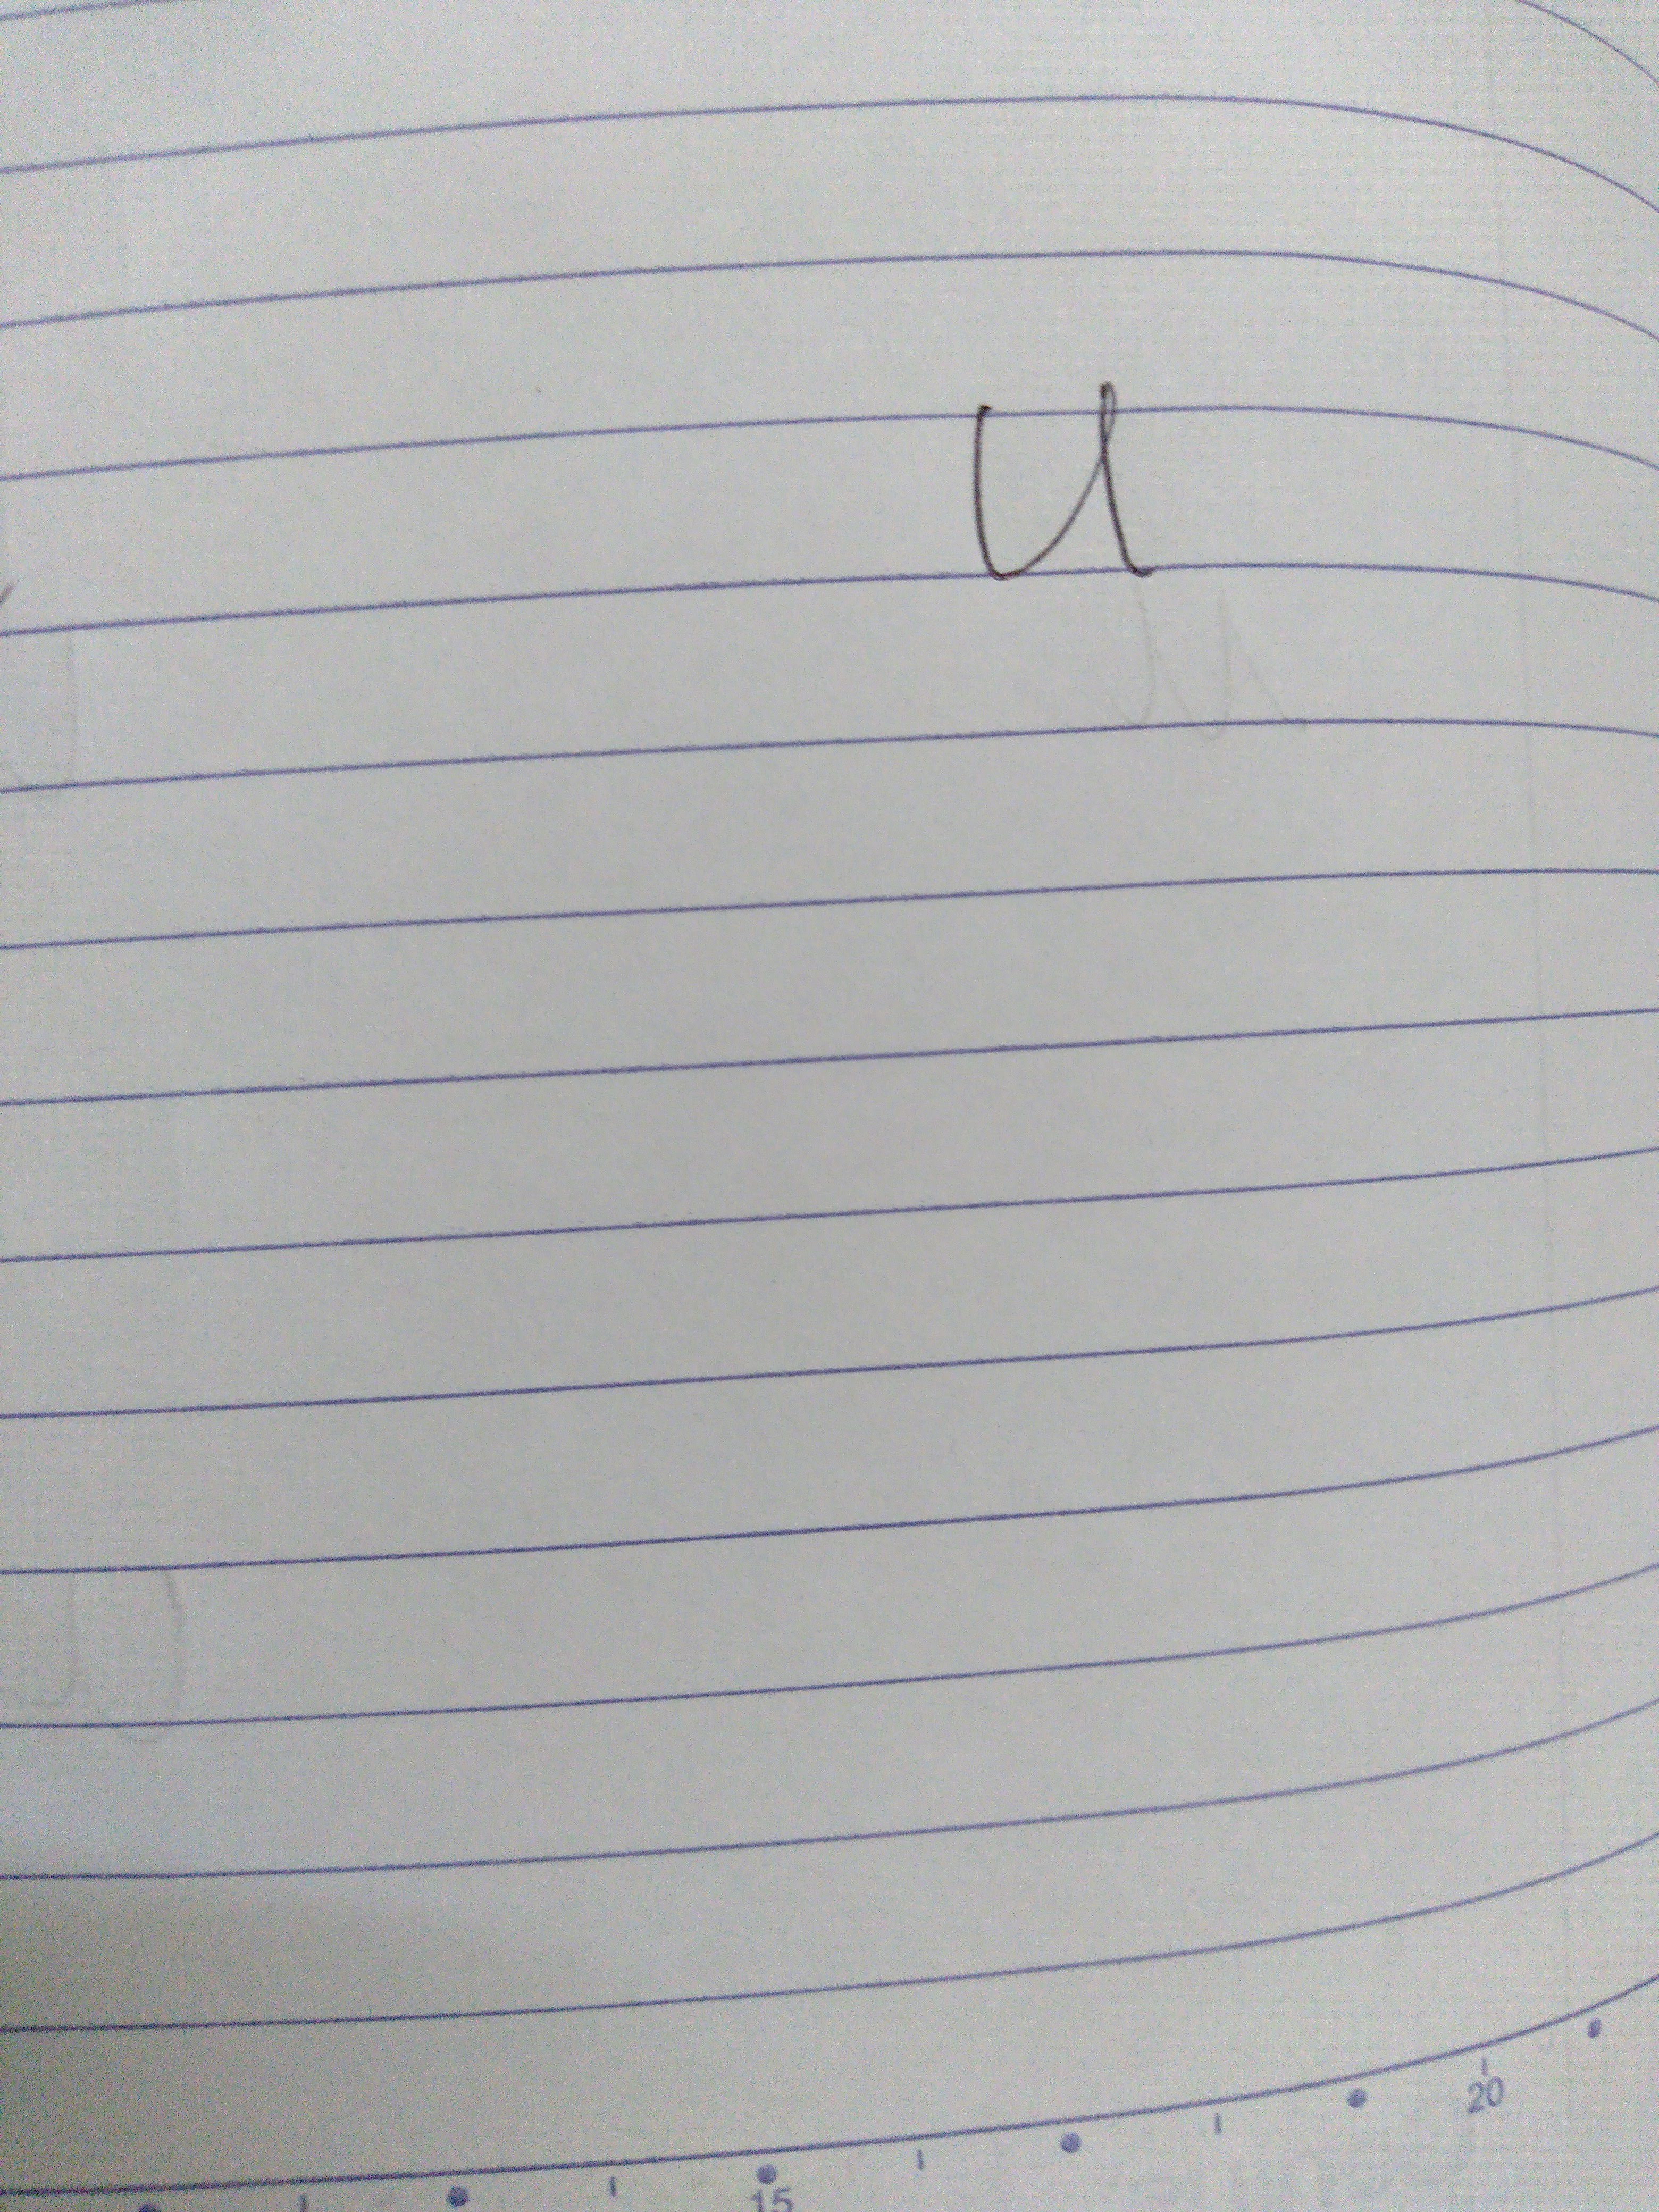 u
15
20